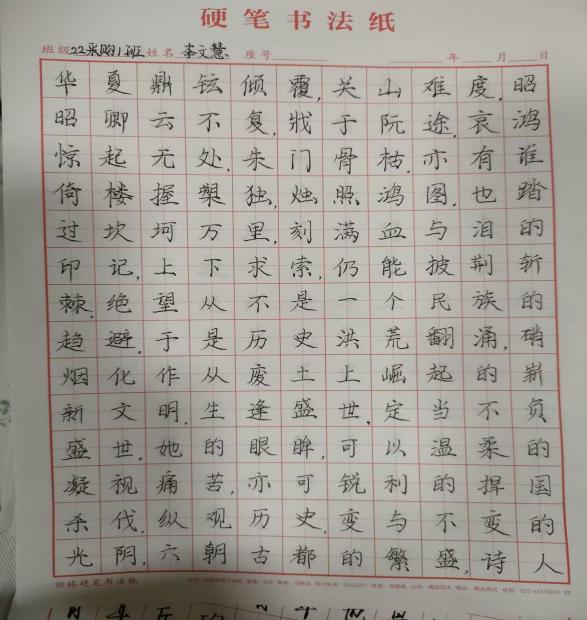 硬笔书法纸
班级22采购1班 姓名 李文慧 座号 年 月 日
华夏鼎铉倾覆,关山难度,昭
昭卿云不复,戕于阮途.哀鸿
惊起无处,朱门骨枯.亦有谁
倚楼握槊独,烛照鸿图.也踏
过坎坷万里,刻满血与泪的
印记,上下求索,仍能披荆斩
棘.绝望从不是一个民族的
趋避.于是历史洪荒翻涌,硝
烟化作从废土上崛起的崭
新文明.生逢盛世,定当不负
盛世.她的眼眸,可以温柔的
凝视痛苦,亦可锐利的捍国
杀伐.纵观历史,变与不变的
光阴.六朝古都的繁盛,诗人
田格硬笔书法纸